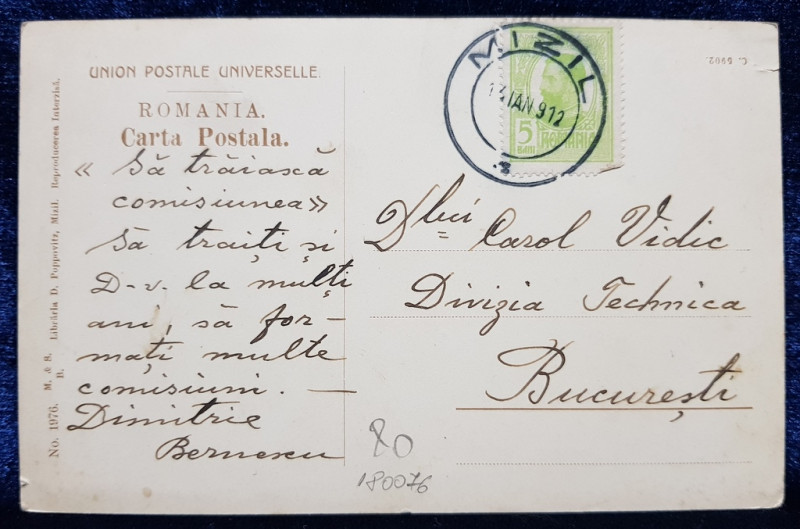 UNION POSTALE UNIVERSELLE.
ROMANIA.
Carta Postala.
« Să trăiască
comisiunea»
Să traiți și
D-v. la mulți
ani, să for-
mați multe
comisiuni. —
Dimitrie
Bernescu
No. 1976. M. & S. B. Librăria D. Poppovitz, Mizil. Reproducerea Interzisă.
MIZIL
13 IAN 912
5
BANI
ROMANIA
C. 5992.
Dlui Carol Vidic
Divizia Technica
București
80
180076